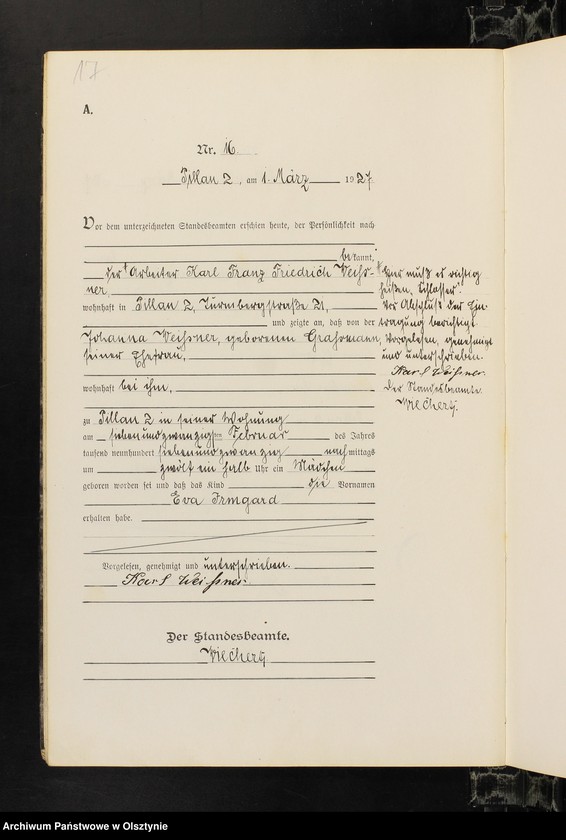 17
A.
Nr. 16
Pillau 2, am 1. März 1927.
Vor dem unterzeichneten Standesbeamten erschien heute, der Persönlichkeit nach
bekannt,
der Arbeiter Karl Franz Friedrich Weißner,
wohnhaft in Pillau 2, Turmbergstraße 21,
und zeigte an, daß von der
Johanna Weißner, geborenen
seiner Ehefrau,
wohnhaft bei ihm,
zu Pillau 2 in seiner Wohnung
am siebenundzwanzigsten Februar des Jahres
tausend neunhundert siebenundzwanzig nachmittags
um zwölf ein halb Uhr ein Mädchen
geboren worden sei und daß das Kind die Vornamen
Eva Irmgard
erhalten habe.
Vorgelesen, genehmigt und unterschrieben.
Karl Weißner.
Der Standesbeamte.
Wiechert
Hier muß es richtig
heißen, „Schlosser".
Vor Abschluß der Ein-
tragung berichtigt.
Vorgelesen, genehmigt
und unterschrieben.
Karl Weißner.
Der Standesbeamte
Wiechert.
Archiwum Państwowe w Olsztynie